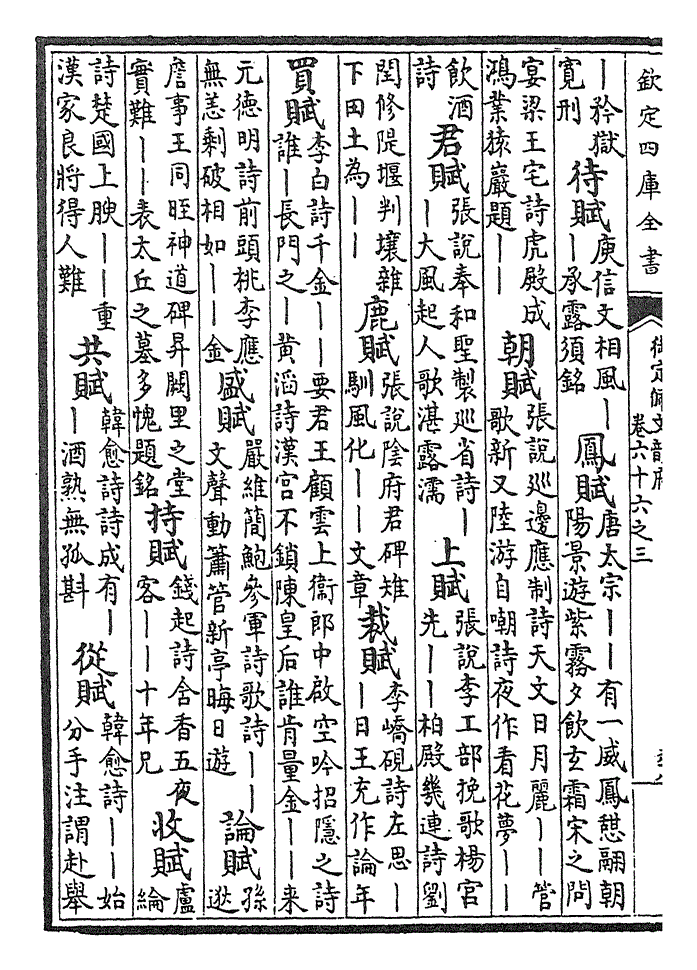 欽定四庫全書
御定佩文韻府
卷六十六之三
｜矜獄
寬刑
待賦
庾信文相風｜
｜承露須銘
鳳賦
唐太宗｜｜有一威鳳憇翮朝
陽景遊紫霧夕飲玄霜宋之問
宴梁王宅詩虎殿成
鴻業猿巖題｜｜
朝賦
張說巡邊應制詩天文日月麗｜｜管
歌新又陸游自嘲詩夜作看花夢｜｜
飲酒
詩
君賦
張說奉和聖製巡省詩｜
｜大風起人歌湛露濡
上賦
張說李工部挽歌楊宫
先｜｜柏殿幾連詩劉
閏修隄堰判壤雜
下田土為｜｜
鹿賦
張說隂府君碑雉
馴風化｜｜文章
裁賦
李嶠硯詩左思｜
｜日王充作論年
買賦
李白詩千金｜｜要君王顧雲上衞郎中啟空吟招隱之詩
誰｜長門之｜黄滔詩漢宫不鎖陳皇后誰肯量金｜｜来
元徳明詩前頭桃李應
無恙剩破相如｜｜金
盛賦
嚴維簡鮑叅軍詩歌詩｜｜
文聲動簫管新亭晦日遊
論賦
孫
逖
詹事王同晊神道碑昇闕里之堂
實難｜｜表太丘之墓多愧題銘
持賦
錢起詩含香五夜
客｜｜十年兄
收賦
盧
綸
詩楚國上腴｜｜重
漢家良將得人難
共賦
韓愈詩詩成有｜
｜酒熟無孤斟
從賦
韓愈詩｜｜始
分手注謂赴舉